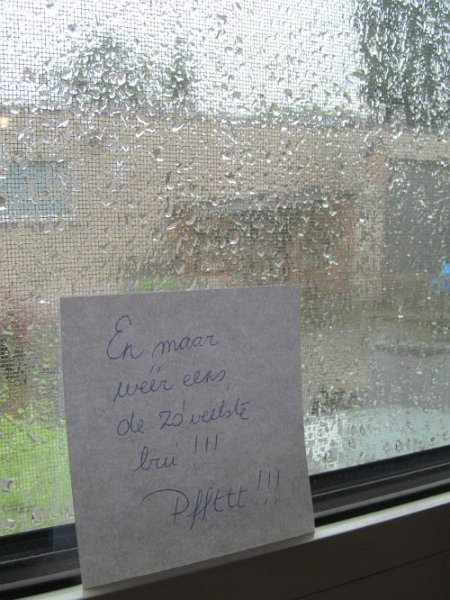 En maar
weër eens,
de zó veelste
brui !!!
Pffttt !!!